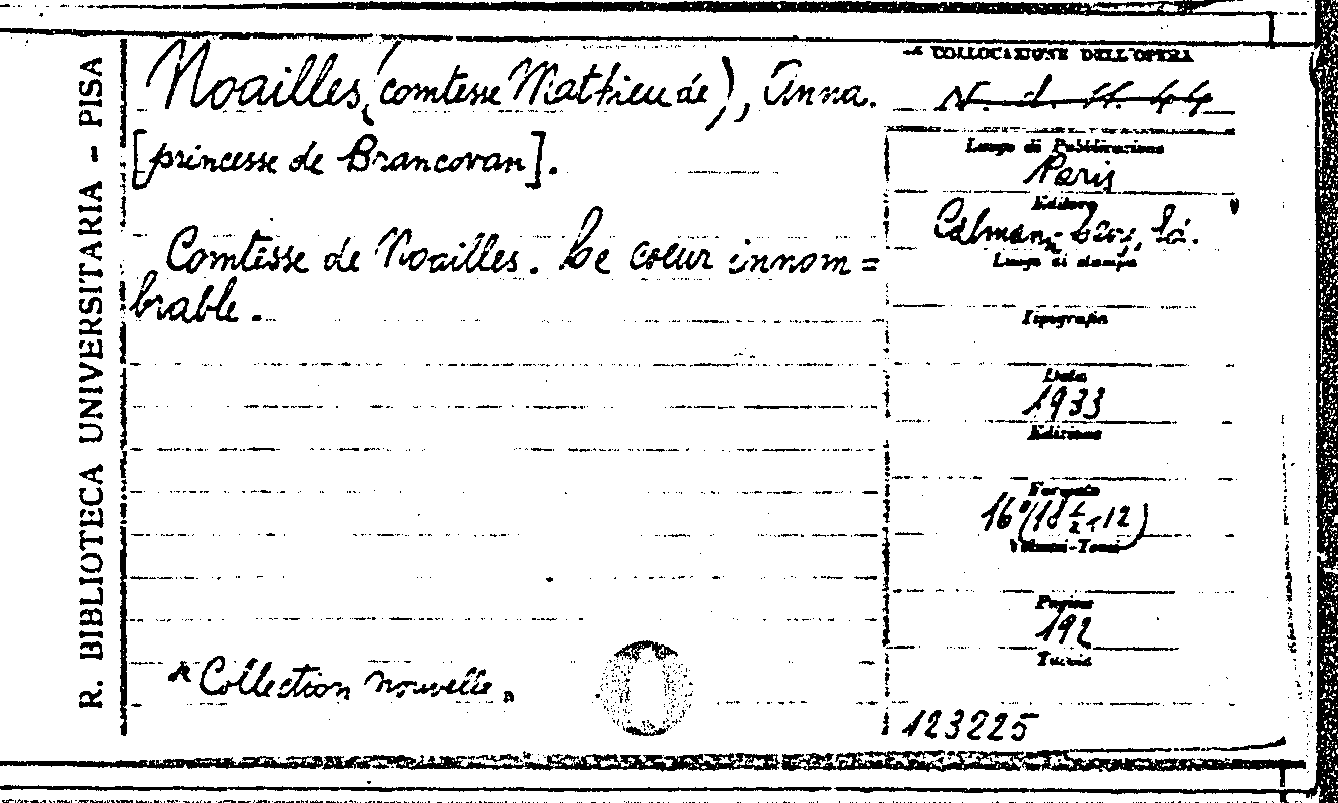 R. BIBLIOTECA UNIVERSITARIA - PISA
Noailles (comtesse Mathieu de), Anna.
[princesse de Brancovan].
Comtesse de Noailles. Le coeur innom=
brable.
"Collection nouvelle"
COLLOCAZIONE DELL'OPERA
N. d. 11. 44
Luogo di Pubblicazione
Paris
Editore
Calmann-Lévy, Ed.
Luogo di stampa
Tipografia
Data
1933
Edizione
Formato
16º(18½×12)
Volumi-Tomi
Pagine
192
Tavole
123225